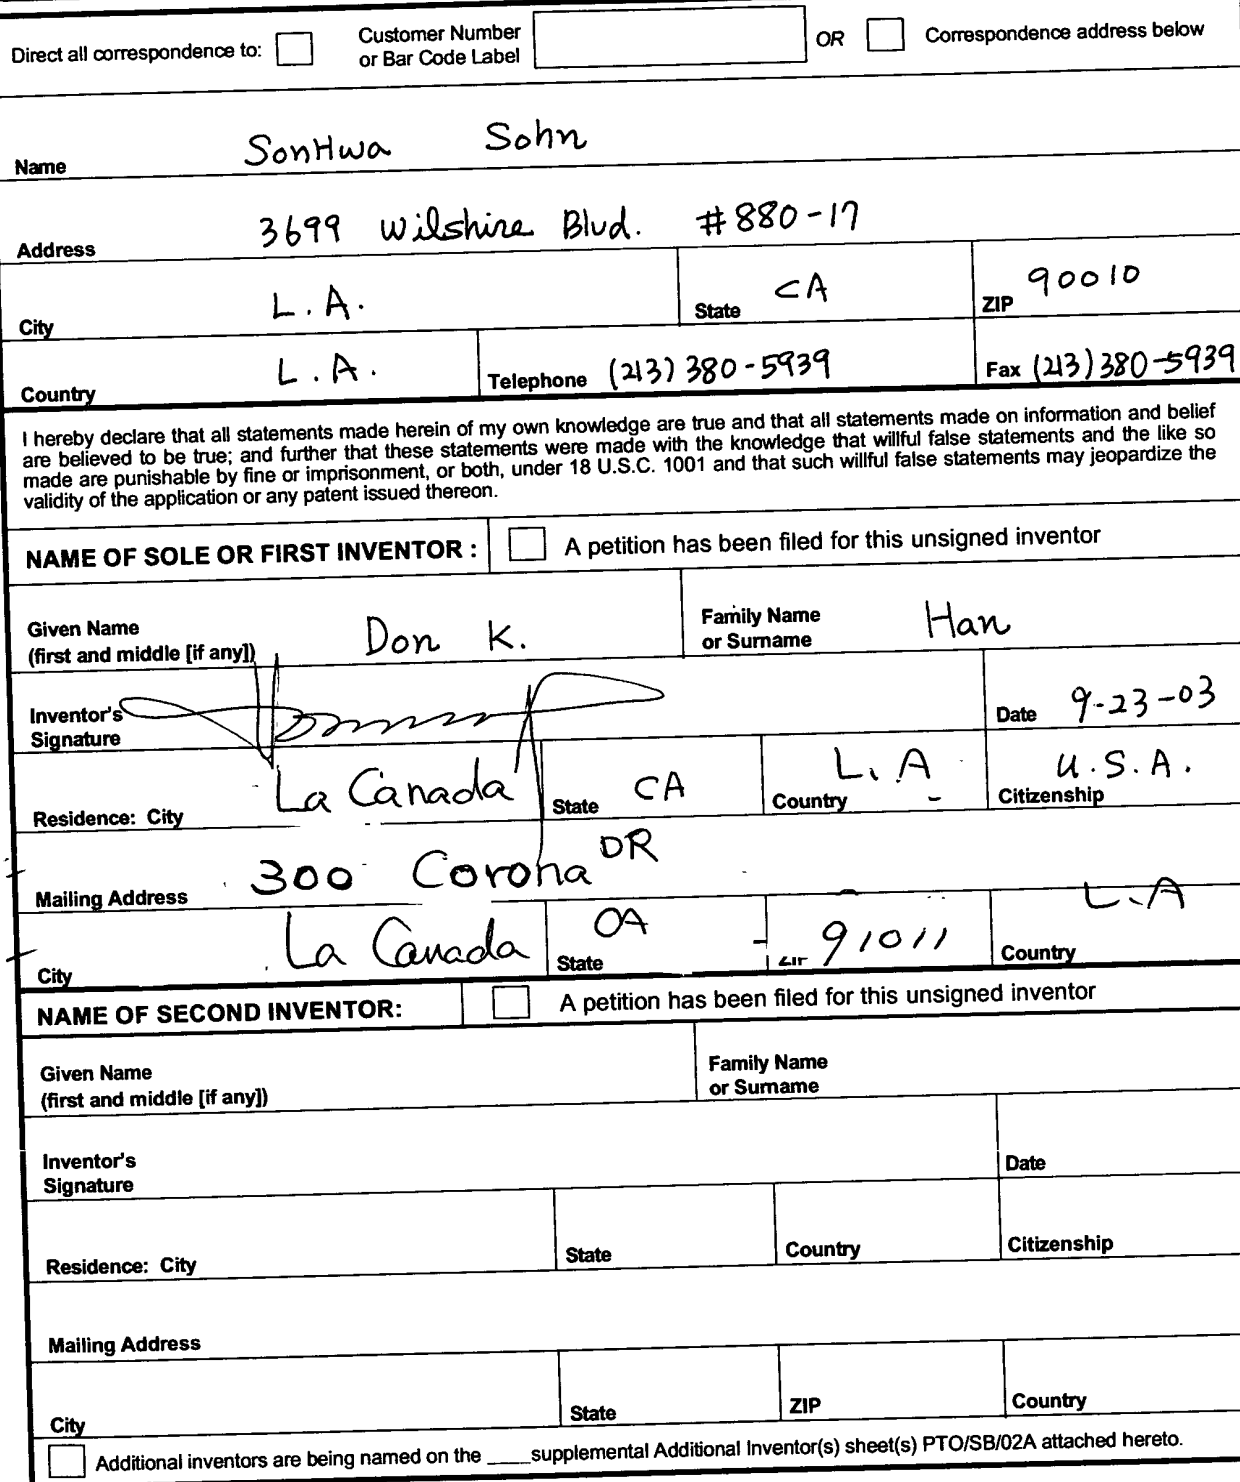 Direct all correspondence to: Customer Number or Bar Code Label OR Correspondence address below
Name SonHwa Sohn
Address 3699 Wilshire Blvd. #880-17
City L.A. State CA ZIP 90010
Country L.A. Telephone (213) 380-5939 Fax (213) 380-5939
I hereby declare that all statements made herein of my own knowledge are true and that all statements made on information and belief
are believed to be true; and further that these statements were made with the knowledge that willful false statements and the like so
made are punishable by fine or imprisonment, or both, under 18 U.S.C. 1001 and that such willful false statements may jeopardize the
validity of the application or any patent issued thereon.
NAME OF SOLE OR FIRST INVENTOR : A petition has been filed for this unsigned inventor
Given Name (first and middle [if any]) Don K. Family Name or Surname Han
Inventor's Signature Date 9-23-03
Residence: City La Canada State CA Country L.A Citizenship U.S.A.
Mailing Address 300 Corona DR
City La Canada State CA ZIP 91011 Country L.A
NAME OF SECOND INVENTOR: A petition has been filed for this unsigned inventor
Given Name (first and middle [if any]) Family Name or Surname
Inventor's Signature Date
Residence: City State Country Citizenship
Mailing Address
City State ZIP Country
Additional inventors are being named on the ____supplemental Additional Inventor(s) sheet(s) PTO/SB/02A attached hereto.